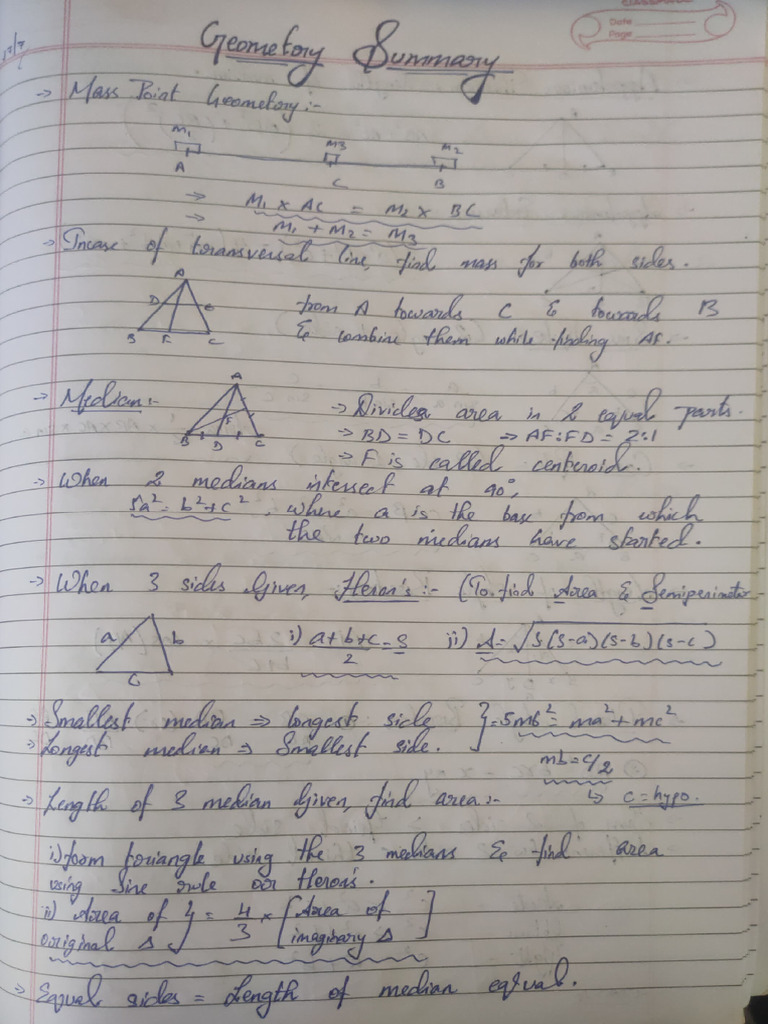 CLASSMATE
Date
Page
Geometory Summary
→ Mass Point Geometory :-
M1 M3 M2
A C B
→ M1 x AC = M2 x BC
→ M1 + M2 = M3
→ Incase of transversal line, find mass for both sides.
A
D E
B F C
from A towards C & towards B
& combine them while finding AF.
→ Median :-
A
F
B D C
→ Divides area in 2 equal parts.
→ BD = DC → AF:FD = 2:1
→ F is called centeroid.
→ When 2 medians intersect at 90°,
5a² = b² + c², where a is the base from which
the two medians have started.
→ When 3 sides Given, Heron's :- (To find Area & Semiperimeter
a b
c
i) a+b+c/2 = S ii) Δ = √S(S-a)(S-b)(S-c)
→ Smallest median ⇒ longest side } = 5mb² = ma² + mc²
→ Longest median ⇒ Smallest side.
mb = c/2
↳ c = hypo.
→ Length of 3 median Given, find area :-
i) form triangle using the 3 medians & find area
using Sine rule or Heron's.
ii) Area of original Δ } = 4/3 x [Area of imaginary Δ]
→ Equal sides = Length of median eqtual.